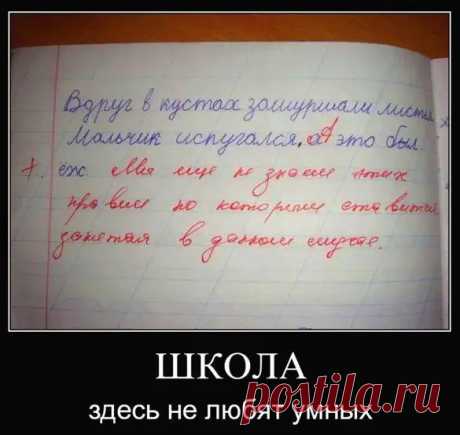 Вдруг в кустах зашуршали листья
Мальчик испугался, а А это был
ёж. Мы еще не знаем этих
правил по которым ставится
запятая в данном случае.
ШКОЛА
здесь не любят умных
postila.ru